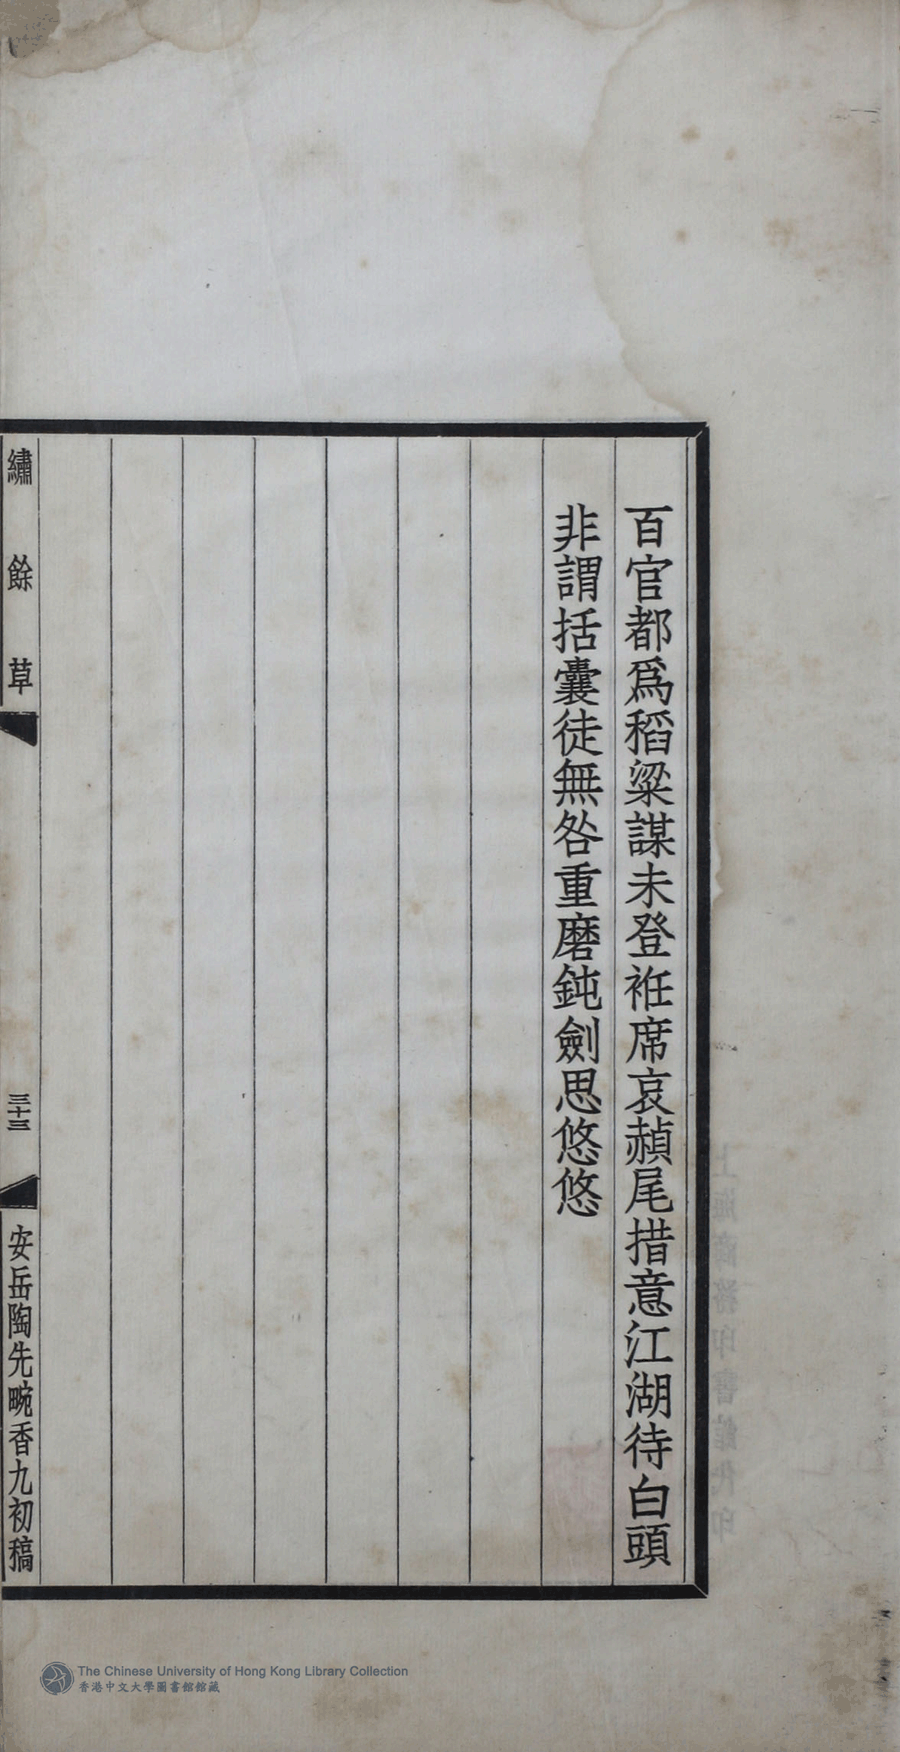 百官都爲稻粱謀未登袵席哀赬尾措意江湖待白頭
非謂括囊徒無咎重磨鈍劍思悠悠
繡餘草
三十三
安岳陶先畹香九初稿
上海商務印書館代印
The Chinese University of Hong Kong Library Collection
香港中文大學圖書館館藏